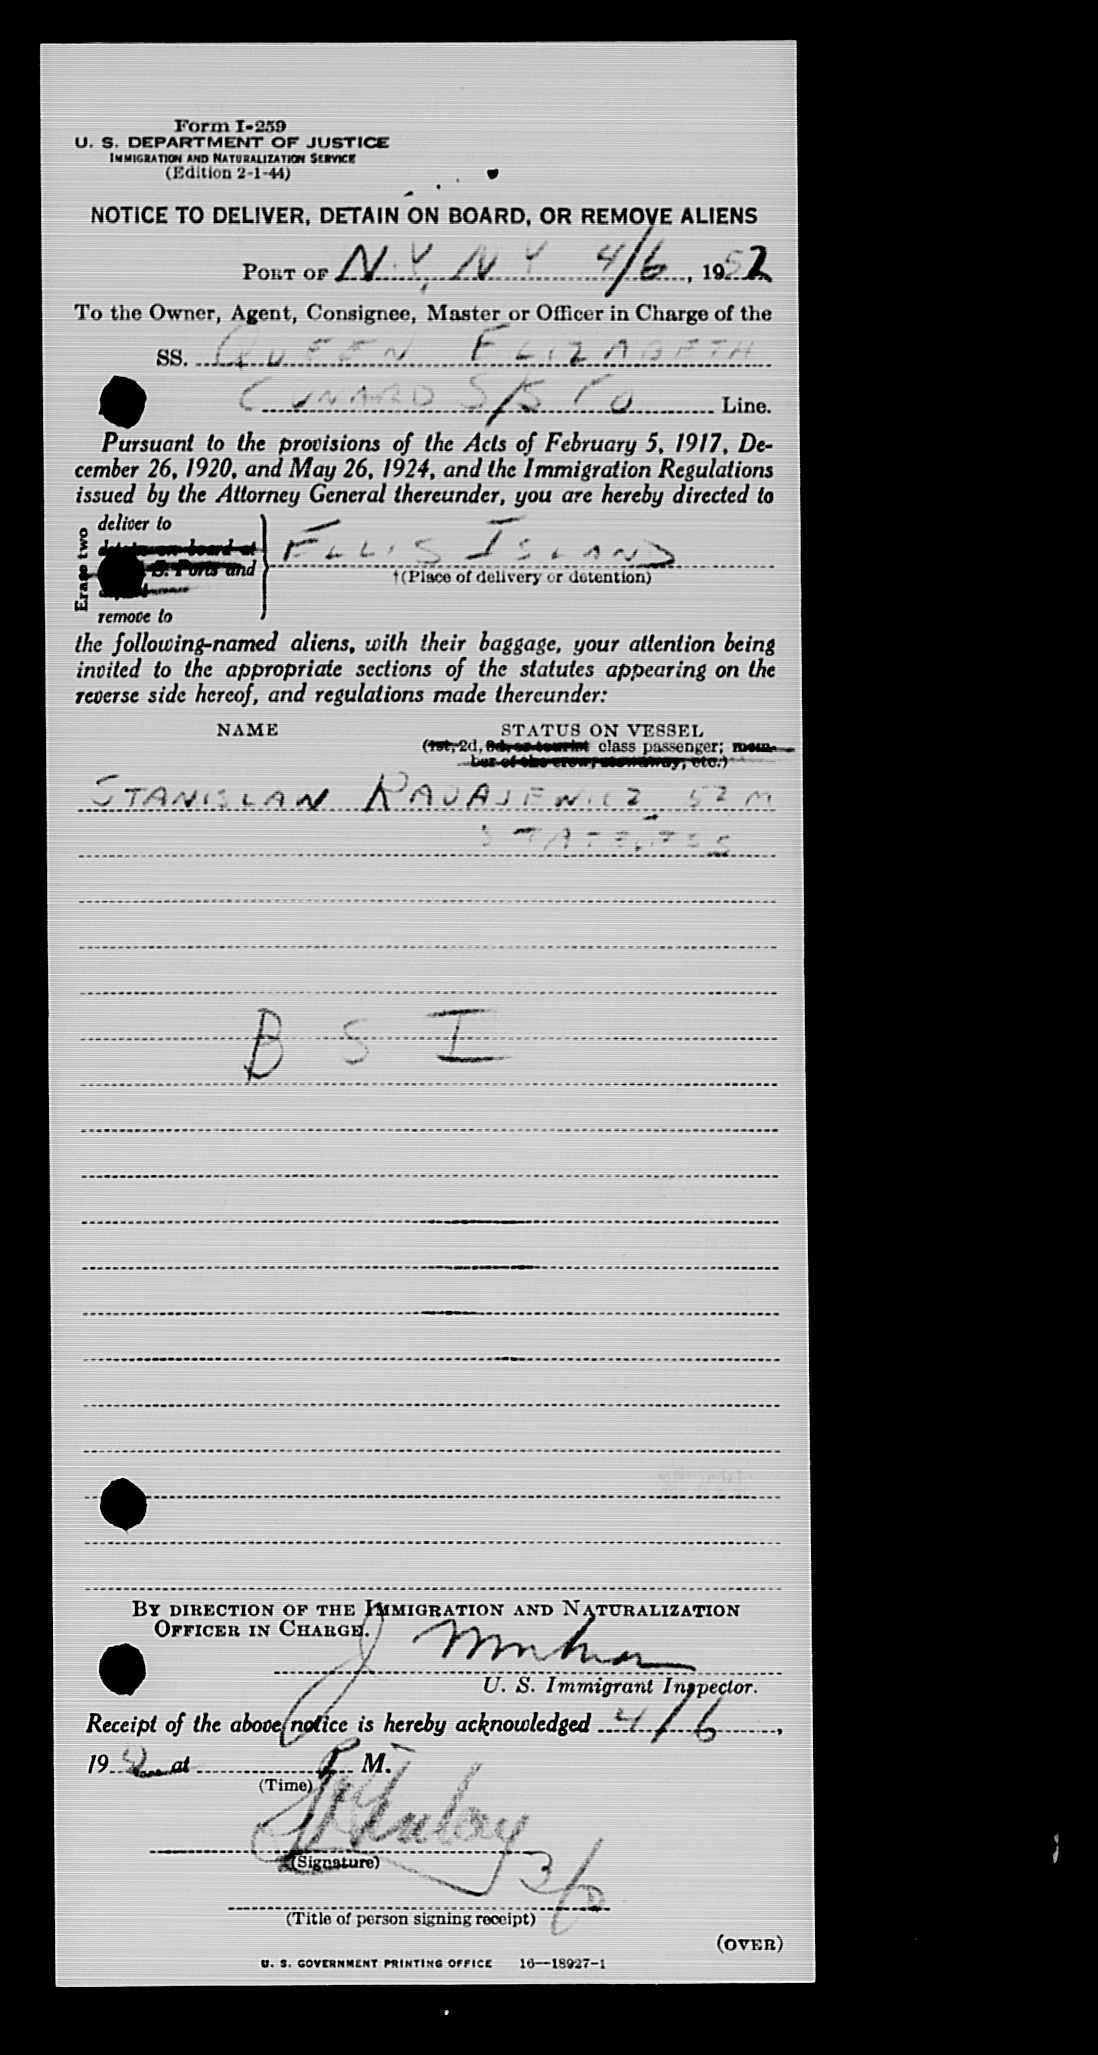 Form I-259
U. S. DEPARTMENT OF JUSTICE
IMMIGRATION AND NATURALIZATION SERVICE
(Edition 2-1-44)
NOTICE TO DELIVER, DETAIN ON BOARD, OR REMOVE ALIENS
PORT OF N.Y, N Y 4/6, 1952
To the Owner, Agent, Consignee, Master or Officer in Charge of the
SS. QUEEN ELIZABETH
CUNARD S/S CO Line.
Pursuant to the provisions of the Acts of February 5, 1917, De-
cember 26, 1920, and May 26, 1924, and the Immigration Regulations
issued by the Attorney General thereunder, you are hereby directed to
Erase two
deliver to
detain on board at
S. Ports and
remove to
ELLIS ISLAND
†(Place of delivery or detention)
the following-named aliens, with their baggage, your attention being
invited to the appropriate sections of the statutes appearing on the
reverse side hereof, and regulations made thereunder:
NAME STATUS ON VESSEL
(1st, 2d, 3d, or tourist class passenger; mem-
ber of the crew, stowaway, etc.)
STANISLAW 52 M
STATELESS
B S I
BY DIRECTION OF THE IMMIGRATION AND NATURALIZATION
OFFICER IN CHARGE.
U. S. Immigrant Inspector.
Receipt of the above notice is hereby acknowledged 4/6,
19 at P M.
(Time)
(Signature)
(Title of person signing receipt)
(OVER)
U. S. GOVERNMENT PRINTING OFFICE 16—18927-1